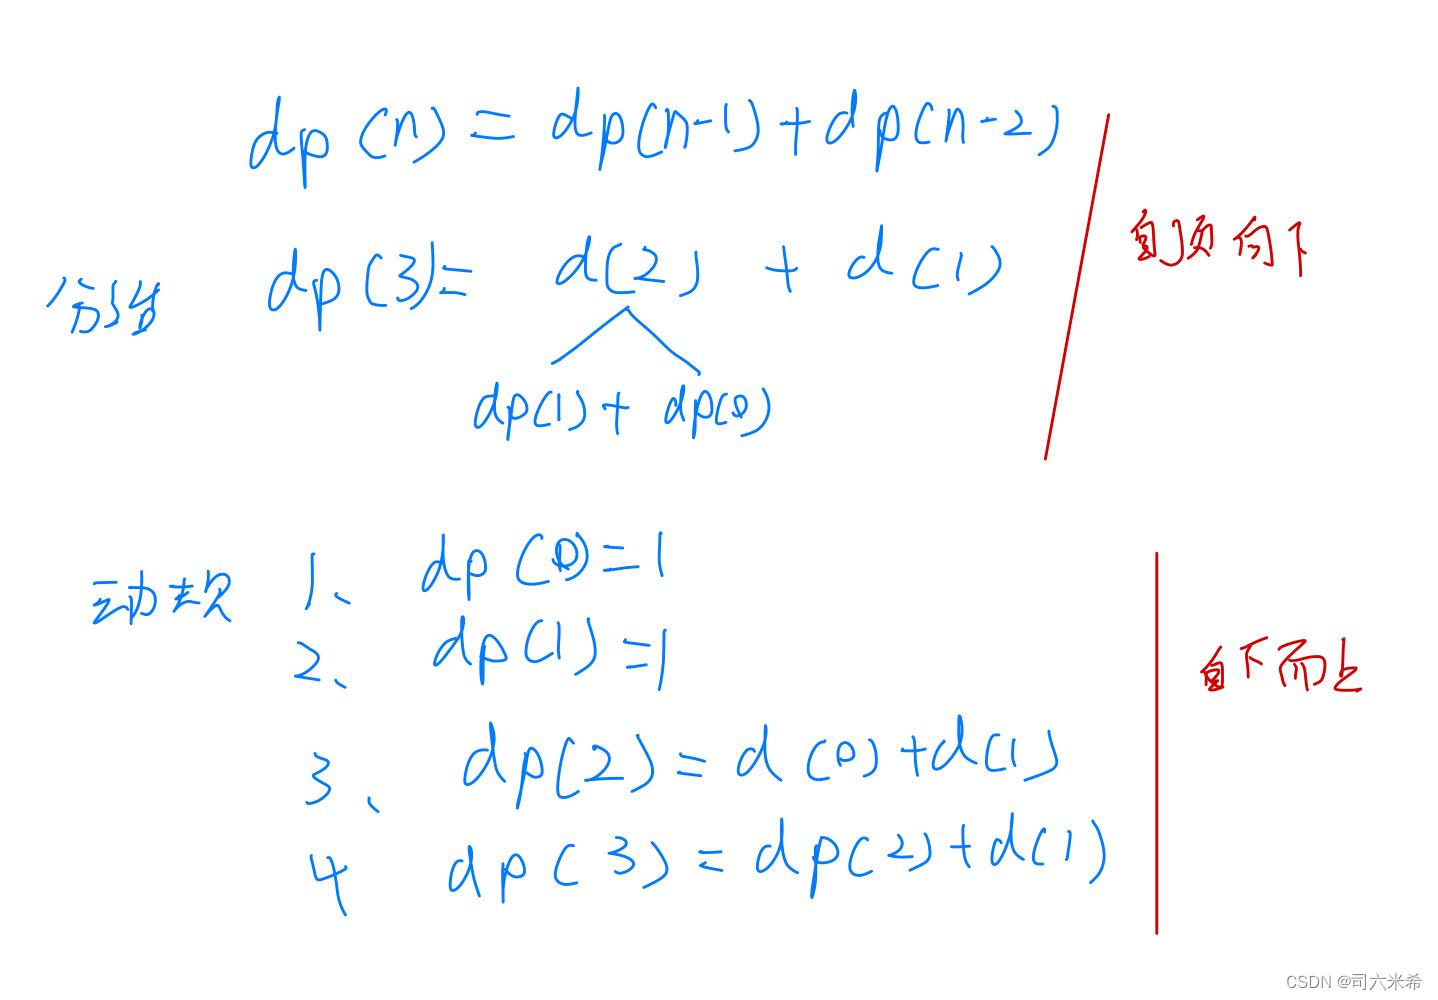 dp(n)=dp(n-1)+dp(n-2)
自顶向下
分治 dp(3)= d(2) + d(1)
dp(1)+ dp(0)
动规 1、 dp(0)=1
2、 dp(1)=1
自下而上
3、 dp(2)=d(0)+d(1)
4 dp(3)=dp(2)+d(1)
CSDN @司六米希